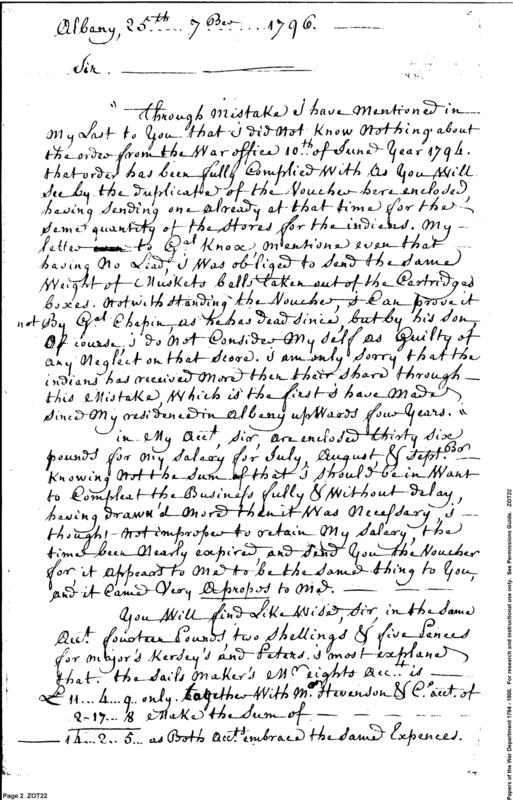 Albany, 25th ..... 7 Ber ..... 1796.
Sir.
"Through Mistake i have Mentioned in
My Last to You that i did Not Know Nothing about
the order from the War office 10th of June Year 1794.
that order has been fully Complied With As You Will
See by the duplicate of the Voucher here enclosed,
having Sending one already at that time for the
Same quantity of the Stores for the indians. My
letter to Gal Knox Mentione even that
having No Lead, i Was obliged to Send the Same
Weight of Muskets balls taken out of the Cartridges
boxes. Notwithstanding the Voucher, i Can prove it
not By Gal Chapin, as he has dead Since, but by his Son,
Of course i do Not Consider My Self as Guilty of
any Neglect on that Score. i am only Sorry that the
indians has received More then their Share through
this Mistake, Which is the first i have Made
Since My residence in Albany upwards four Years."
in My Acct, Sir, are enclosed thirty Six
pounds for my Salary for July, August & Septber
Knowing Not the Sum of that i Should be in Want
to Compleat the Business fully & Without delay,
having drawn'd More then it Was Necessary, i
thought Not improper to retain My Salary, the
time been Nearly expired, and Send You the Voucher
for, it appears to Me to be the Same thing to You,
and it Came Very Apropos to Me.
You Will find Like Wise, Sir, in the Same
Acct fourteen Pounds two Shellings & five Pences
for Major's Kersey's and Peters. i most explane
that. the Sails Maker's Mr eights Acc.t is
£ 11...4...9. only. together With Mr Stevenson & Co. act. of
2-17...8 Make the Sum of
14...2...5... as Both Act.s embrace the Same Expences.
Page 2 ZOT22
Papers of the War Department 1784 - 1800. For research and instructional use only. See Permissions Guide. ZOT22